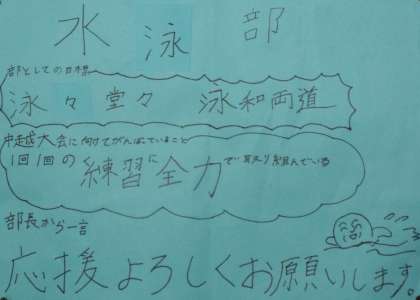 水泳部
部としての目標
泳々堂々 泳和両道
中越大会に向けてがんばっていること
1回1回の練習に全力で取り組んでいる
部長から一言
応援よろしくお願いします。